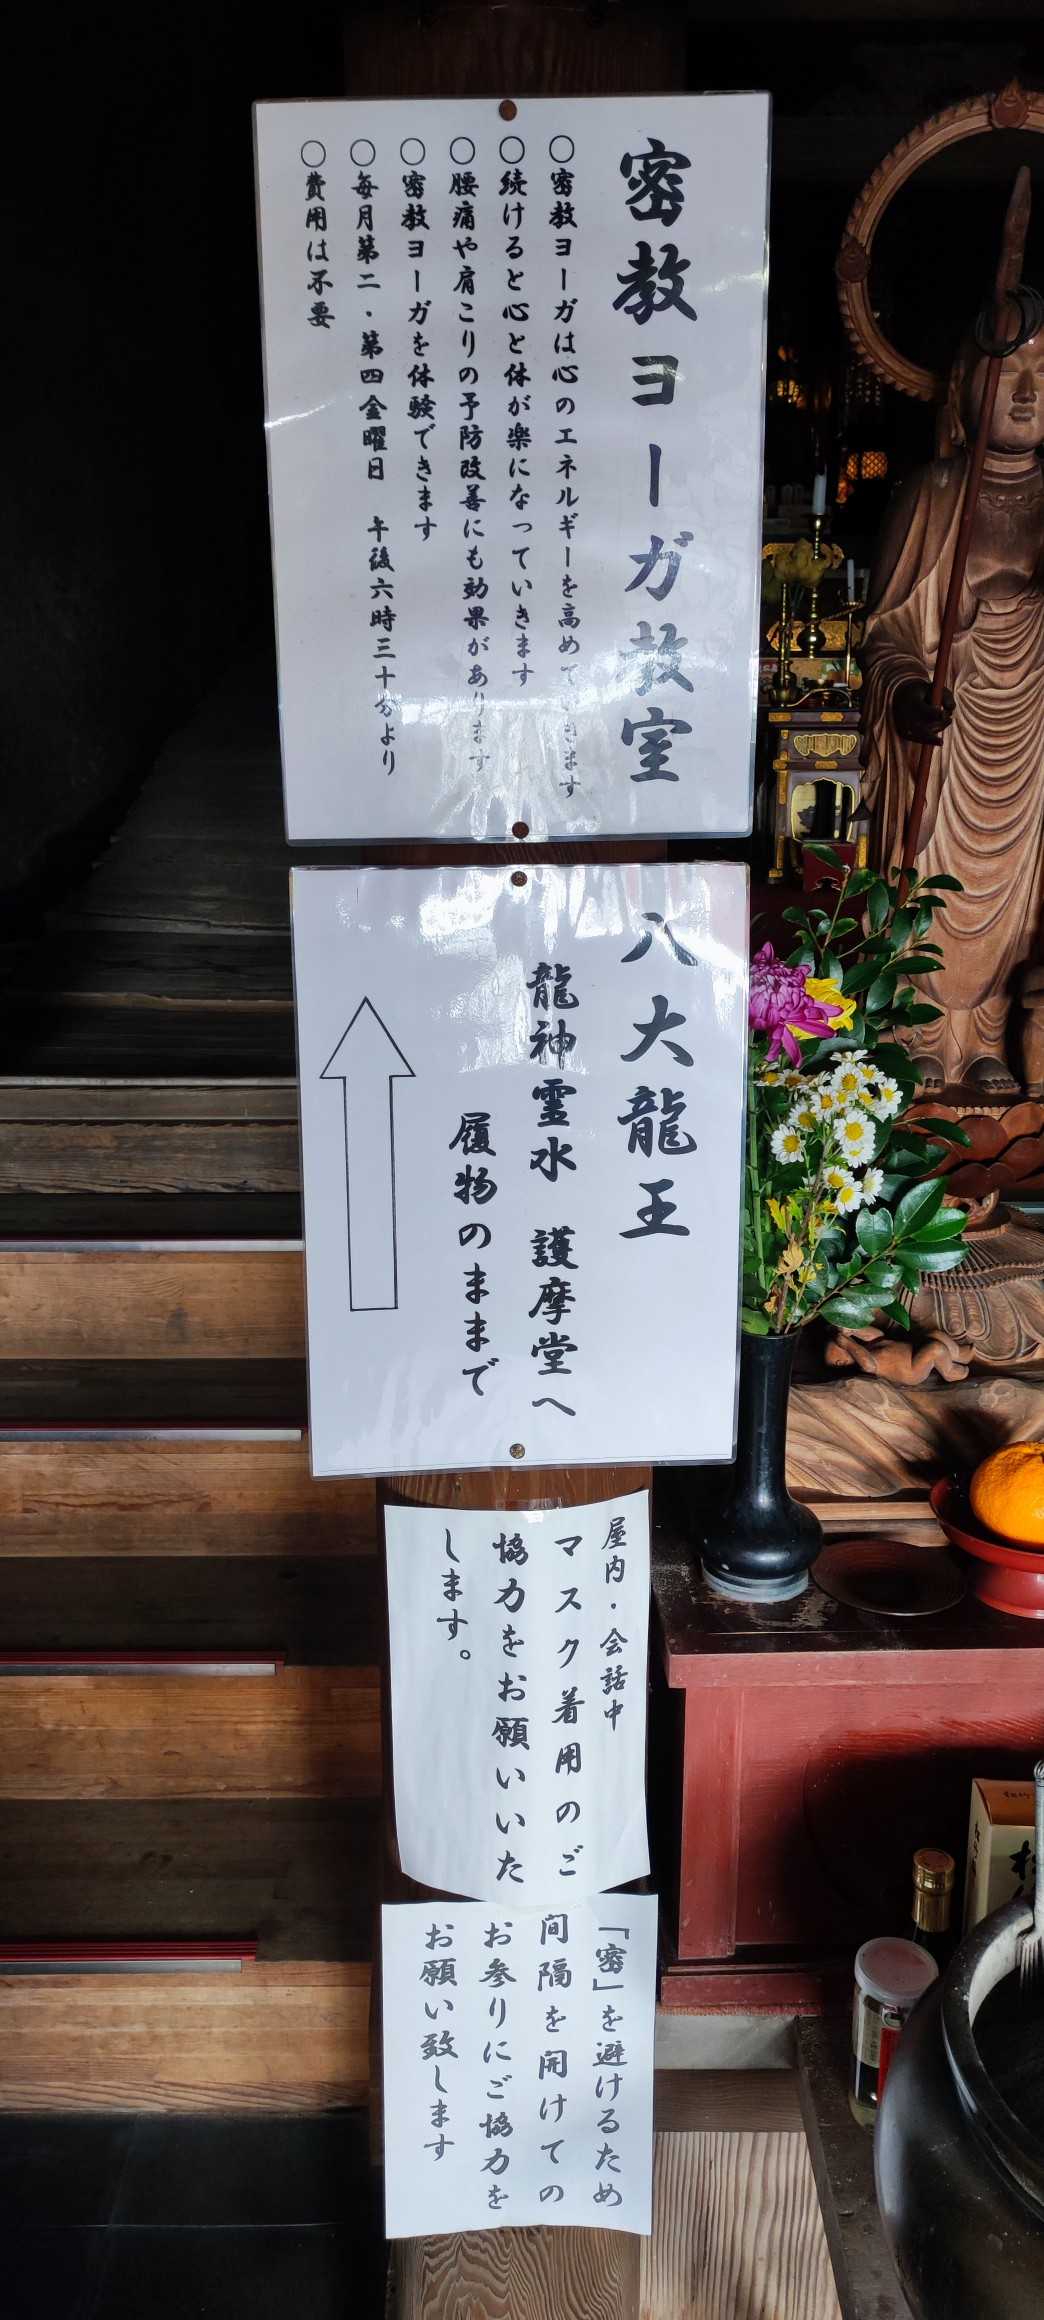 密教ヨーガ教室
○密教ヨーガは心のエネルギーを高めていきます
○続けると心と体が楽になっていきます
○腰痛や肩こりの予防改善にも効果があります
○密教ヨーガを体験できます
○毎月第二・第四金曜日　午後六時三十分より
○費用は不要
八大龍王
龍神霊水　護摩堂へ
履物のままで
屋内・会話中
マスク着用のご
協力をお願いいた
します。
「密」を避けるため
間隔を開けての
お参りにご協力を
お願い致します